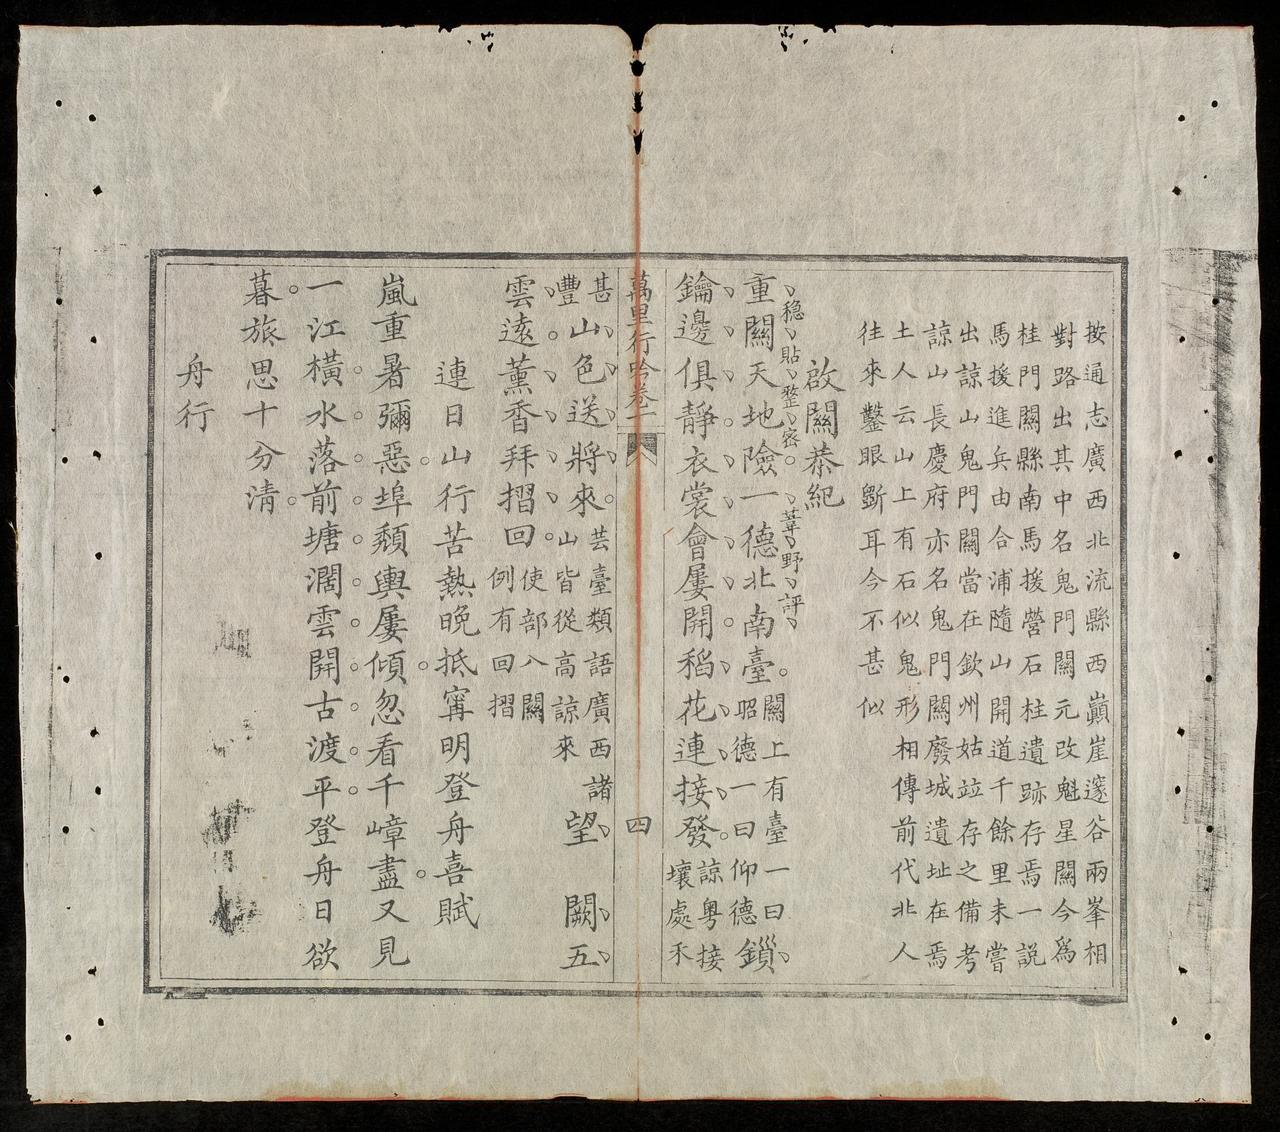 按通志廣西北流縣西巔崖邃谷兩峯相
對路出其中名鬼門關元改魁星關今爲
桂門關縣南馬援營石柱遺跡存焉一説
馬援進兵由合浦隨山開道千餘里未嘗
出諒山鬼門關當在欽州姑竝存之備考
諒山長慶府亦名鬼門關廢城遺址在焉
土人云山上有石似鬼形相傳前代北人
往來鑿眼斵耳今不甚似
啟關恭紀
穏貼整密葦野評
重關天地險一德北南臺關上有臺一曰昭德一曰仰德鎖
鑰邊俱靜衣裳會屢開稻花連接發諒粤接壤處禾
萬里行吟卷二
四
甚豐山色送將來芸臺類語廣西諸山皆從高諒來望 闕五
雲遠薰香拜摺回使部八關例有回摺
連日山行苦熱晚抵寗明登舟喜賦
嵐重暑彌惡埠頽輿屢傾忽看千嶂盡又見
一江橫水落前塘濶雲開古渡平登舟日欲
暮旅思十分清
舟行